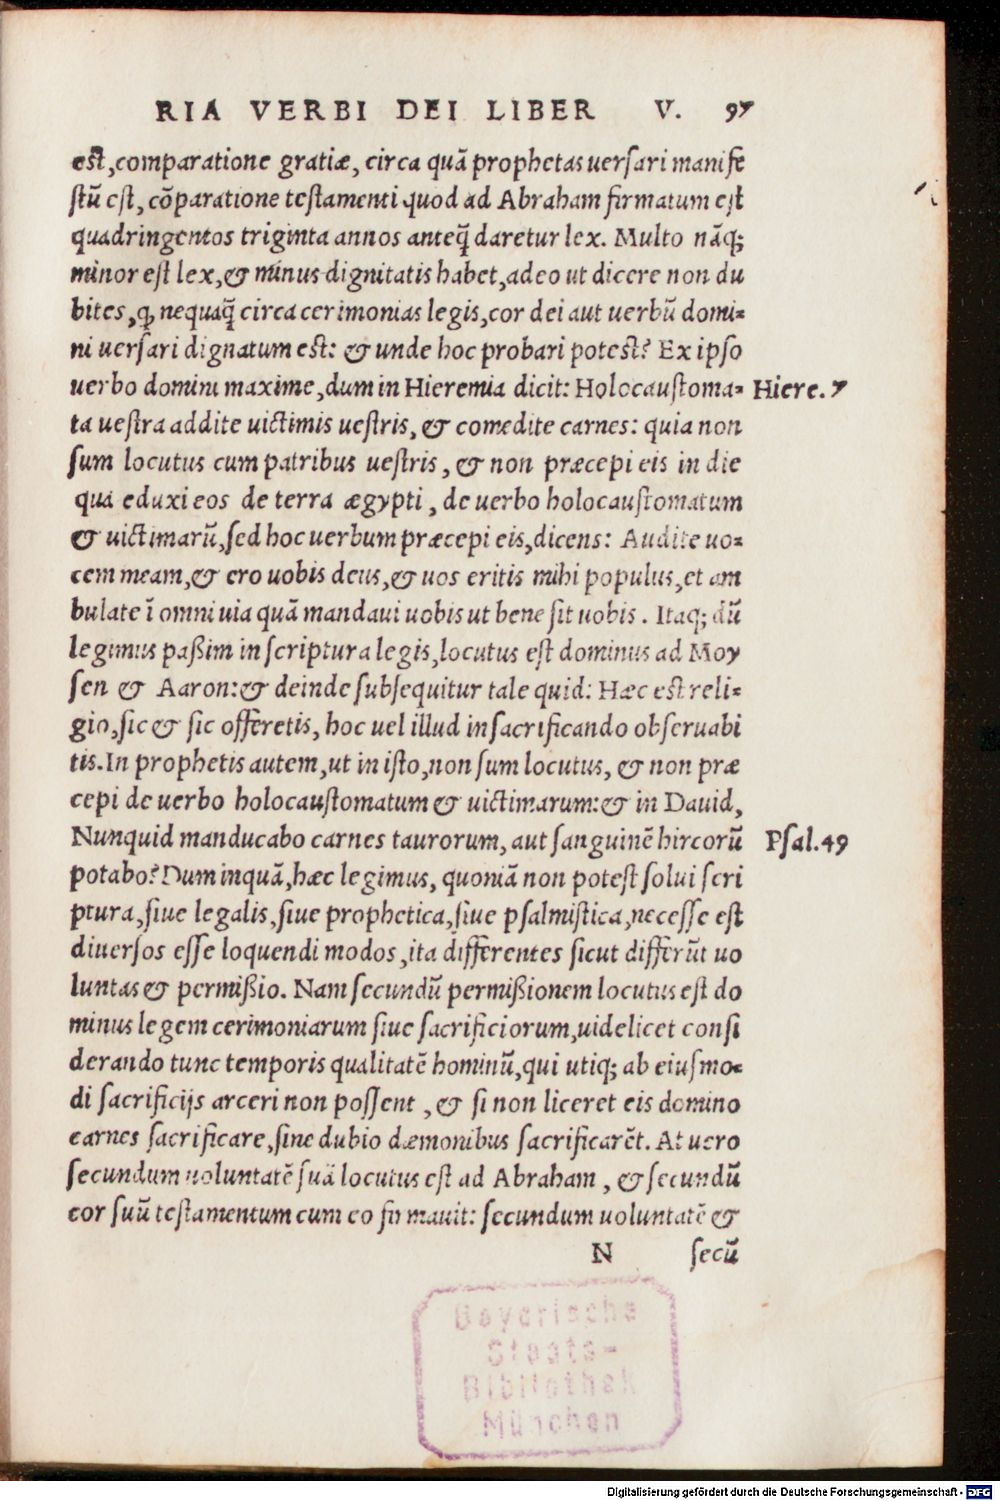 RIA VERBI DEI LIBER V. 97
est, comparatione gratiæ, circa quā prophetas uersari manife
stū est, cōparatione testamenti quod ad Abraham firmatum est
quadringentos triginta annos anteq̃ daretur lex. Multo nāq;
minor est lex, & minus dignitatis habet, adeo ut dicere non du
bites, ꝙ nequaq̃ circa cerimonias legis, cor dei aut uerbū domi-
ni uersari dignatum est: & unde hoc probari potest? Ex ipso
uerbo domini maxime, dum in Hieremia dicit: Holocaustoma- Hiere. 7
ta uestra addite uictimis uestris, & comedite carnes: quia non
sum locutus cum patribus uestris, & non præcepi eis in die
qua eduxi eos de terra ægypti, de uerbo holocaustomatum
& uictimarū, sed hoc uerbum præcepi eis, dicens: Audite uo-
cem meam, & ero uobis deus, & uos eritis mihi populus, et am
bulate ī omni uia quā mandaui uobis ut bene sit uobis. Itaq; dū
legimus paßim in scriptura legis, locutus est dominus ad Moy
sen & Aaron: & deinde subsequitur tale quid: Hæc est reli-
gio, sic & sic offeretis, hoc uel illud in sacrificando obseruabi
tis. In prophetis autem, ut in isto, non sum locutus, & non præ
cepi de uerbo holocaustomatum & uictimarum: & in Dauid,
Nunquid manducabo carnes taurorum, aut sanguinē hircorū Psal. 49
potabo? Dum inquā, hæc legimus, quoniā non potest solui scri
ptura, siue legalis, siue prophetica, siue psalmistica, necesse est
diuersos esse loquendi modos, ita differentes sicut differūt uo
luntas & permißio. Nam secundū permißionem locutus est do
minus legem cerimoniarum siue sacrificiorum, uidelicet consi
derando tunc temporis qualitatē hominū, qui utiq; ab eiusmo-
di sacrificijs arceri non possent, & si non liceret eis domino
carnes sacrificare, sine dubio dæmonibus sacrificarēt. At uero
secundum uoluntatē suā locutus est ad Abraham, & secundū
cor suū testamentum cum eo firmauit: secundum uoluntatē &
N secū
Bayerische
Staats-
Bibliothek
München
Digitalisierung gefördert durch die Deutsche Forschungsgemeinschaft - DFG